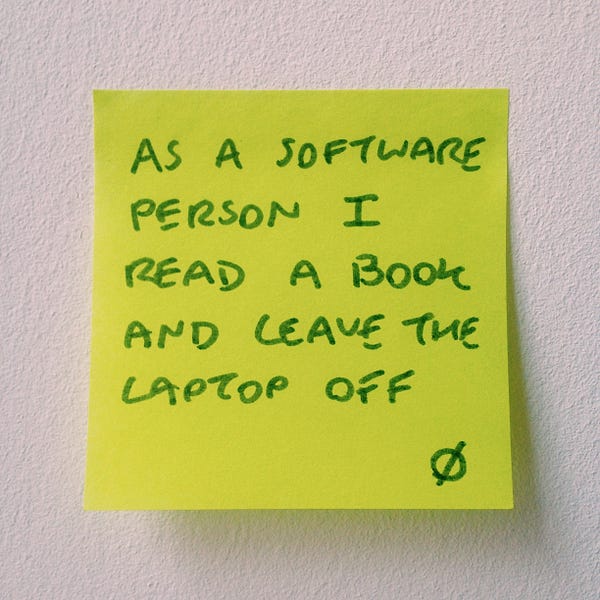 AS A SOFTWARE
PERSON I
READ A BOOK
AND LEAVE THE
LAPTOP OFF
Ø